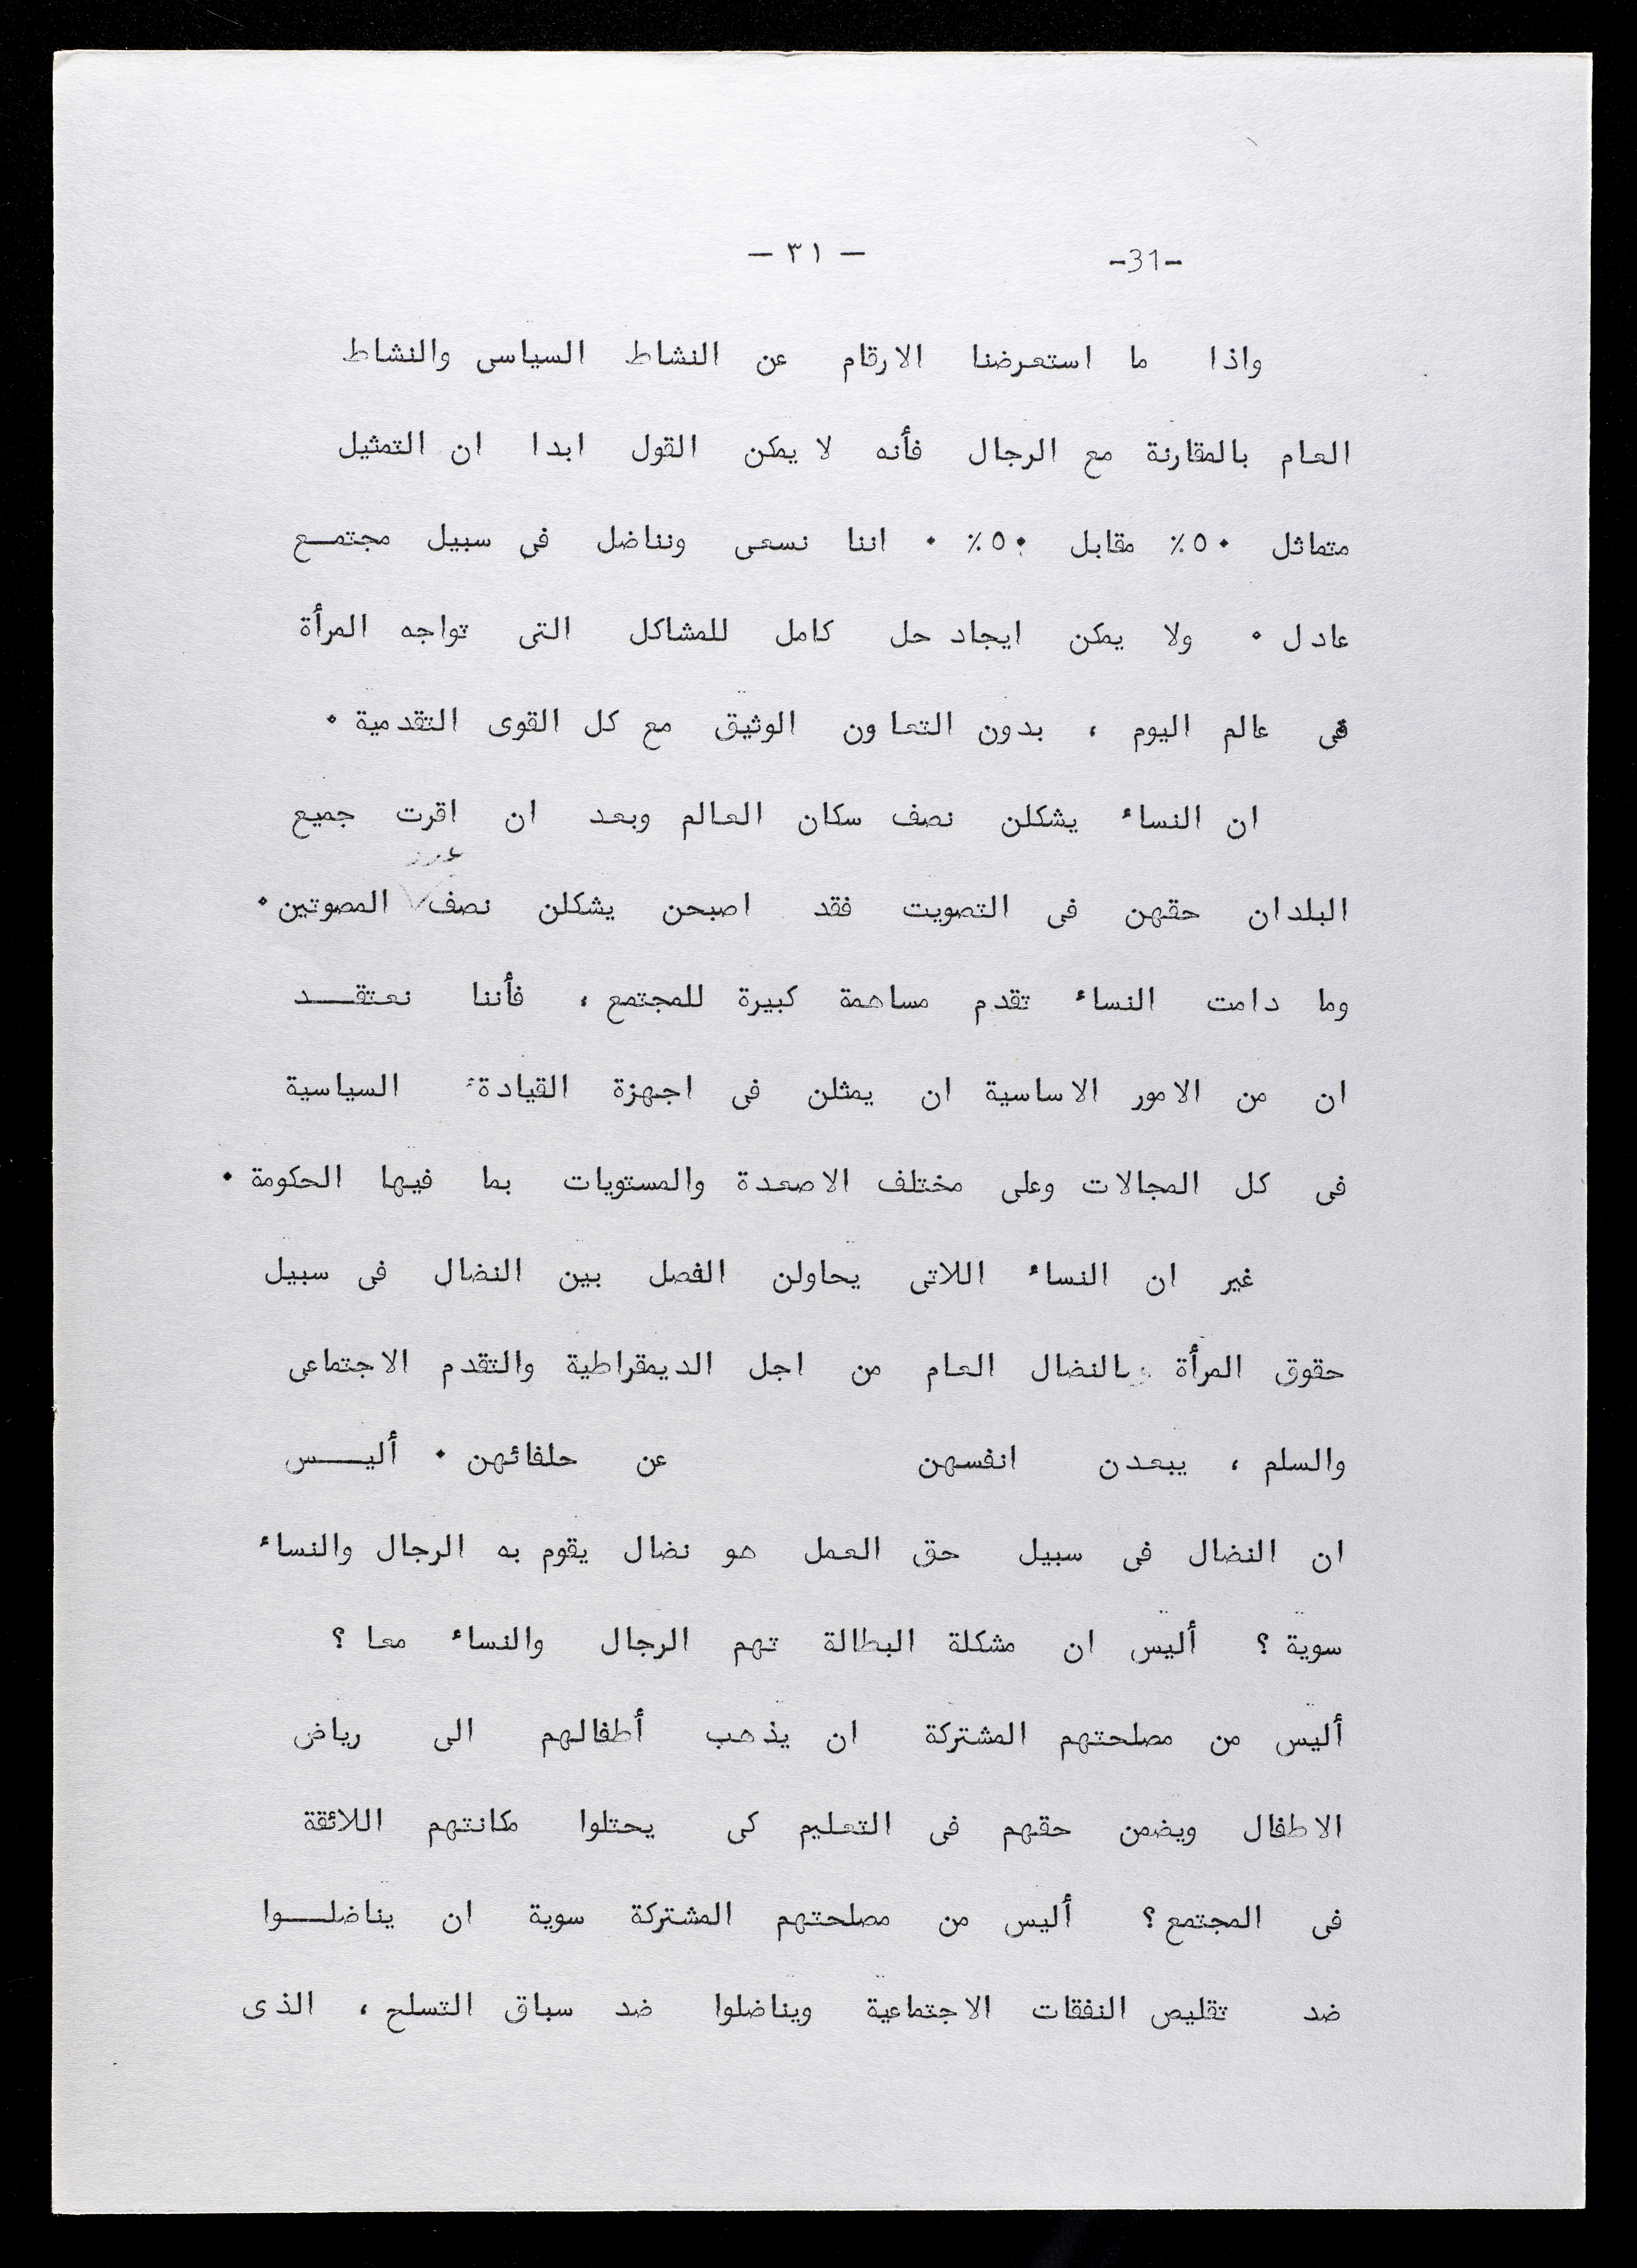 — ٣١ — -31-
واذا ما استعرضنا الارقام عن النشاط السياسى والنشاط
العام بالمقارنة مع الرجال فأنه لا يمكن القول ابدا ان التمثيل
متماثل ٥٠٪ مقابل ٥٠٪ ٠ اننا نسعى ونناضل فى سبيل مجتمـــع
عادل ٠ ولا يمكن ايجاد حل كامل للمشاكل التى تواجه المرأة
فى عالم اليوم ، بدون التعاون الوثيق مع كل القوى التقدمية ٠
ان النساء يشكلن نصف سكان العالم وبعد ان اقرت جميع
عدد
البلدان حقهن فى التصويت فقد اصبحن يشكلن نصف المصوتين ٠
وما دامت النساء تقدم مساهمة كبيرة للمجتمع ، فأننا نعتقـــد
ان من الامور الاساسية ان يمثلن فى اجهزة القيادة السياسية
فى كل المجالات وعلى مختلف الاصعدة والمستويات بما فيها الحكومة ٠
غير ان النساء اللاتى يحاولن الفصل بين النضال فى سبيل
حقوق المرأة بالنضال العام من اجل الديمقراطية والتقدم الاجتماعى
والسلم ، يبعدن انفسهن عن حلفائهن ٠ أليـــس
ان النضال فى سبيل حق العمل هو نضال يقوم به الرجال والنساء
سوية ؟ أليس ان مشكلة البطالة تهم الرجال والنساء معا ؟
أليس من مصلحتهم المشتركة ان يذهب أطفالهم الى رياض
الاطفال ويضمن حقهم فى التعليم كى يحتلوا مكانتهم اللائقة
فى المجتمع ؟ أليس من مصلحتهم المشتركة سوية ان يناضلـــوا
ضد تقليص النفقات الاجتماعية ويناضلوا ضد سباق التسلح ، الذى